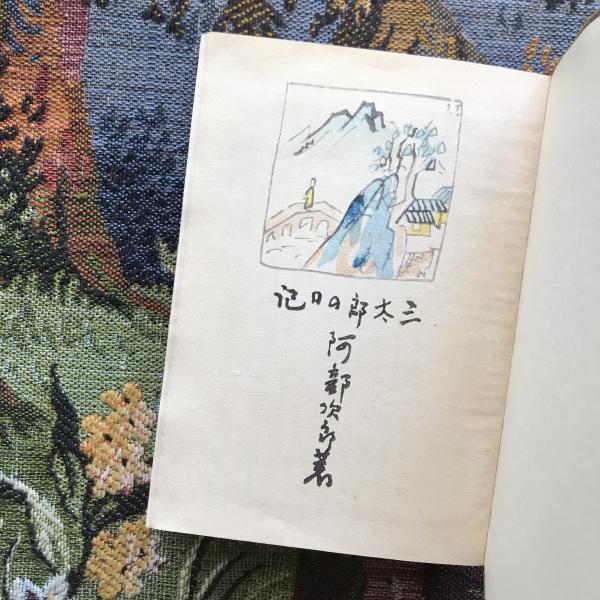 三太郎の日記
阿部次郎著